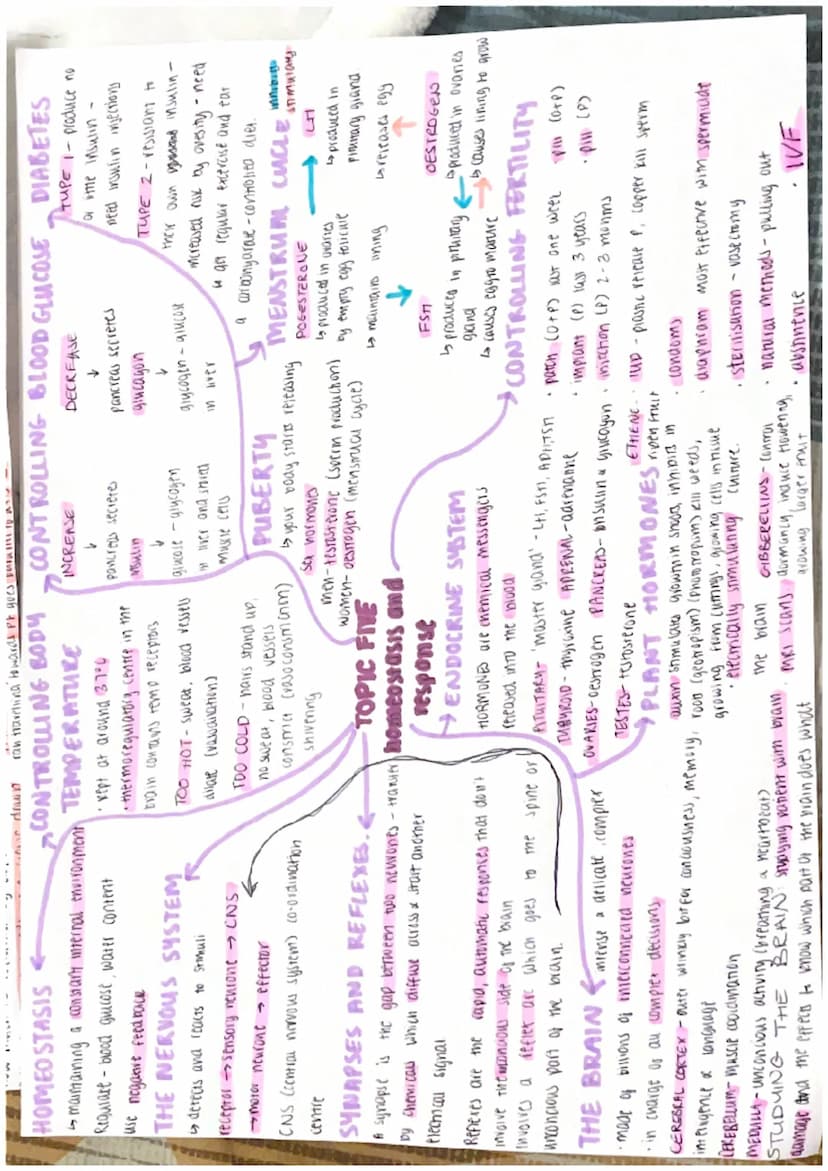 HOMEOSTASIS
↳ maintaining a constant internal environment
Regulate - blood glucose, water content
use negative feedback
THE NERVOUS SYSTEM
↳ detects and reacts to stimuli
receptor → sensory neurone → CNS
→ motor neurone → effector
CNS (central nervous system) co-ordination
centre
SYNAPSES AND REFLEXES
A synapse is the gap between two neurones - transfer
by chemicals which diffuse across & start another
electrical signal
Reflexes are the rapid, automatic responses that don't
involve the conscious side of the brain
Involves a reflex arc which goes to the spine or
unconcious part of the brain.
THE BRAIN
intense & delicate, complex
· made of billions of interconnected neurones
· in charge of all complex decisions
CEREBRAL CORTEX - outer wrinkly bit for conciousness, memory,
intelligence & language
CEREBELLUM - muscle coordination
MEDULLA - unconcious activity (breathing & heartbeat)
STUDYING THE BRAIN: studying patient with brain
damage and the effects to know which part of the brain does what
· MRI scans
· electrically stimulating
the brain
CONTROLLING BODY
TEMPERATURE
· kept at around 37°C
· thermoregulatory centre in the
brain contains temp receptors
TOO HOT - sweat, blood vessels
dilate (vasodilation)
TOO COLD - hairs stand up,
no sweat, blood vessels
constrict (vasoconstriction)
shivering
TOPIC FIVE
homeostasis and
response
CONTROLLING BLOOD GLUCOSE
INCREASE
↓
pancreas secretes
insulin
↓
glucose - glycogen
in liver and stored
muscle cells
DECREASE
↓
pancreas secretes
glucagon
↓
glycogen - glucose
in liver
DIABETES
TYPE 1 - produce no
or little insulin -
need insulin injections
TYPE 2 - resistant to
their own insulin -
increased risk by obesity - need
↳ get regular exercise and eat
a carbohydrate - controlled diet.
PUBERTY
↳ your body starts releasing
sex hormones
men - testosterone (sperm production)
women - oestrogen (menstrual cycle)
MENSTRUAL CYCLE
inhibiting
stimulating
POGESTERONE
↳ produced in ovaries
by empty egg follicule
↳ maintains lining
LH
↳ produced in
pituitary gland
↳ releases egg
FSH
↳ produced in pituitary
gland
↳ causes egg to mature
OESTROGEN
↳ produced in ovaries
↳ causes lining to grow
ENDOCRINE SYSTEM
HORMONES are chemical messengers
released into the blood
PITUITARY - 'master gland' - LH, FSH, ADH, TSH
THRYROID - thyroxine ADRENAL - adrenaline
OVARIES - oestrogen PANCREAS - insulin & glucagon
TESTES - testosterone
PLANT HORMONES
ETHENE -
ripen fruit
auxin stimulates growth in shoots, inhibits in
roots (geotropism) (phototropism) kill weeds,
growing from cuttings, growing cells in tissue
culture.
GIBBERELLINS - control
dormancy, induce flowering,
growing larger fruit
CONTROLLING FERTILITY
· patch (O+P) last one week
· pill (O+P)
· implant (P) last 3 years
· pill (P)
· injection (P) 2-3 months
· IUD - plastic release P, copper kill sperm
· condoms
· diaphram most effective with spermicide
· sterilisation - vasectomy
· natural methods - pulling out
· abstinence
· IVF